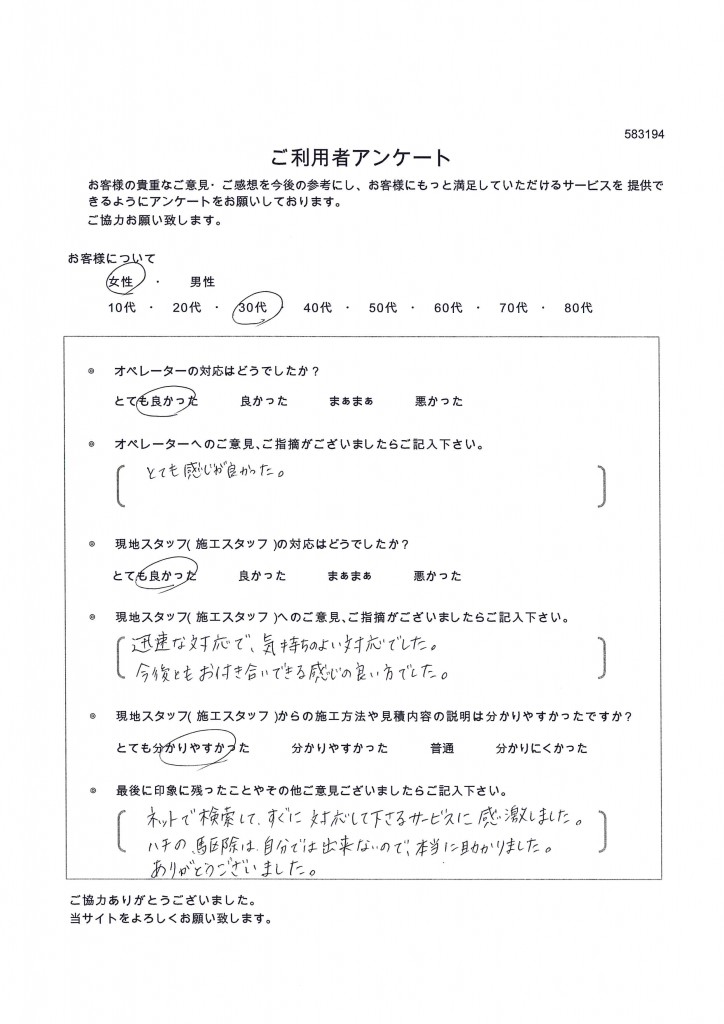 583194
ご利用者アンケート
お客様の貴重なご意見・ご感想を今後の参考にし、お客様にもっと満足していただけるサービスを 提供で
きるようにアンケートをお願いしております。
ご協力お願い致します。
お客様について
女性 ・ 男性
10代 ・ 20代 ・ 30代 ・ 40代 ・ 50代 ・ 60代 ・ 70代 ・ 80代
◎ オペレーターの対応はどうでしたか？
とても良かった 良かった まぁまぁ 悪かった
◎ オペレーターへのご意見、ご指摘がございましたらご記入下さい。
とても感じが良かった。
◎ 現地スタッフ( 施工スタッフ )の対応はどうでしたか？
とても良かった 良かった まぁまぁ 悪かった
◎ 現地スタッフ( 施工スタッフ )へのご意見、ご指摘がございましたらご記入下さい。
迅速な対応で、気持ちのよい対応でした。
今後ともお付き合いできる感じの良い方でした。
◎ 現地スタッフ( 施工スタッフ )からの施工方法や見積内容の説明は分かりやすかったですか？
とても分かりやすかった 分かりやすかった 普通 分かりにくかった
◎ 最後に印象に残ったことやその他ご意見ございましたらご記入下さい。
ネットで検索して、すぐに対応して下さるサービスに感激しました。
ハチの駆除は、自分では出来ないので、本当に助かりました。
ありがとうございました。
ご協力ありがとうございました。
当サイトをよろしくお願い致します。